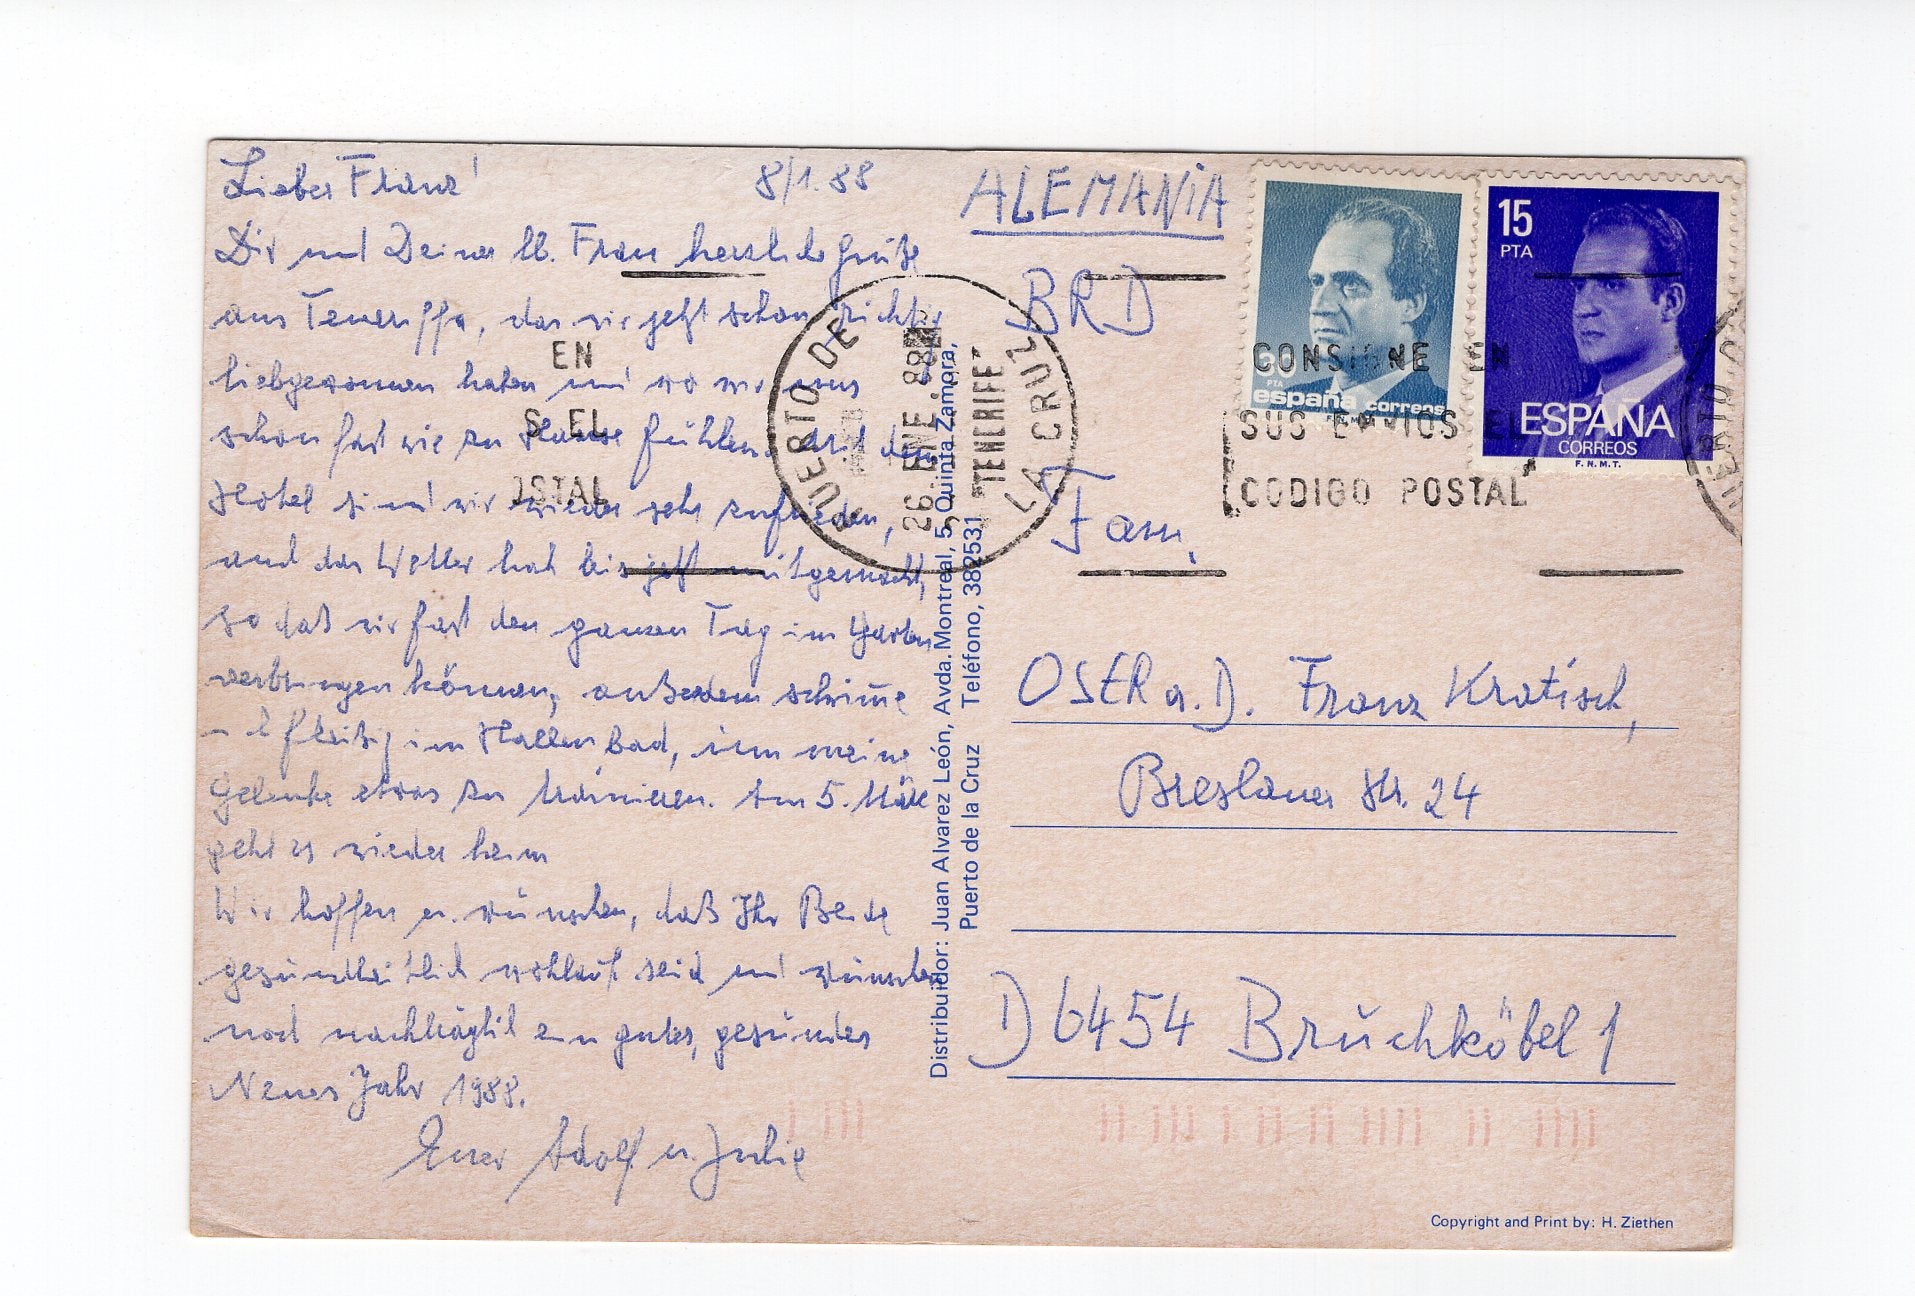 Lieber Franz! 8/1.88
Dir und Deiner lb. Frau herzliche Grüße
aus Teneriffa, das wir jetzt schon richtig
liebgewonnen haben und wo wir uns
schon fast wie zu Hause fühlen. Mit dem
Hotel sind wir wieder sehr zufrieden,
und das Wetter hat bis jetzt mitgemacht,
so daß wir fast den ganzen Tag im Garten
verbringen können, außerdem schwimme
fleißig im Hallenbad, um meine
Gelenke etwas zu trainieren. Am 5. März
geht es wieder heim
Wir hoffen u. wünschen, daß Ihr Beide
gesundheitlich wohlauf seid und wünschen
noch nachträglich ein gutes, gesundes
Neues Jahr 1988.
Euer Adolf u. Julie
Distribuidor: Juan Alvarez León, Avda. Montreal, 5, Quinta Zamora,
Puerto de la Cruz Teléfono, 382531
ALEMANIA
BRD
Fam.
OSER a. D. Franz Kratisch,
Breslauer Str. 24
D 6454 Bruchköbel 1
EN
S EL
OSTAL
PUERTO DE
LA CRUZ
26. ENE. 88
TENERIFE
CONSIGNE EN
SUS ENVIOS EL
CODIGO POSTAL
PTA
españa correos
15
PTA
ESPAÑA
CORREOS
F.N.M.T.
Copyright and Print by: H. Ziethen